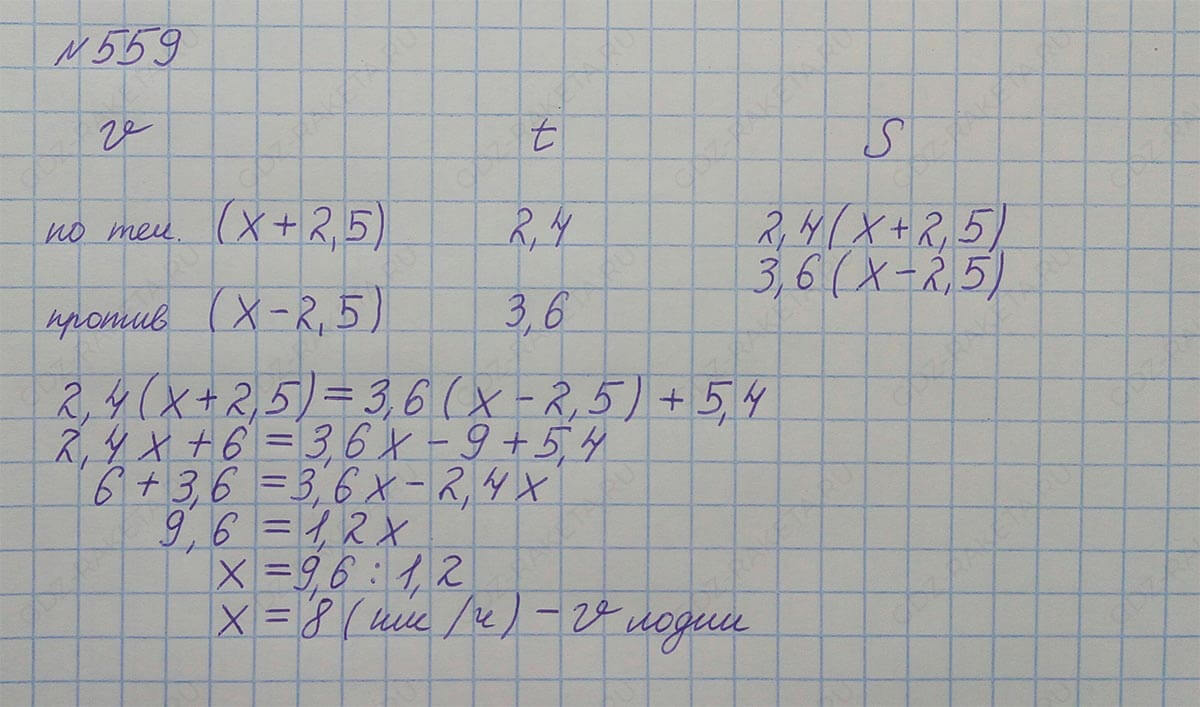 №559
v t S
по теч. (x+2,5) 2,4 2,4(x+2,5)
3,6(x-2,5)
против (x-2,5) 3,6
2,4(x+2,5)=3,6(x-2,5)+5,4
2,4x+6=3,6x-9+5,4
6+3,6=3,6x-2,4x
9,6=1,2x
x=9,6:1,2
x=8(км/ч)-v лодки
GDZ-RAKETA.RU